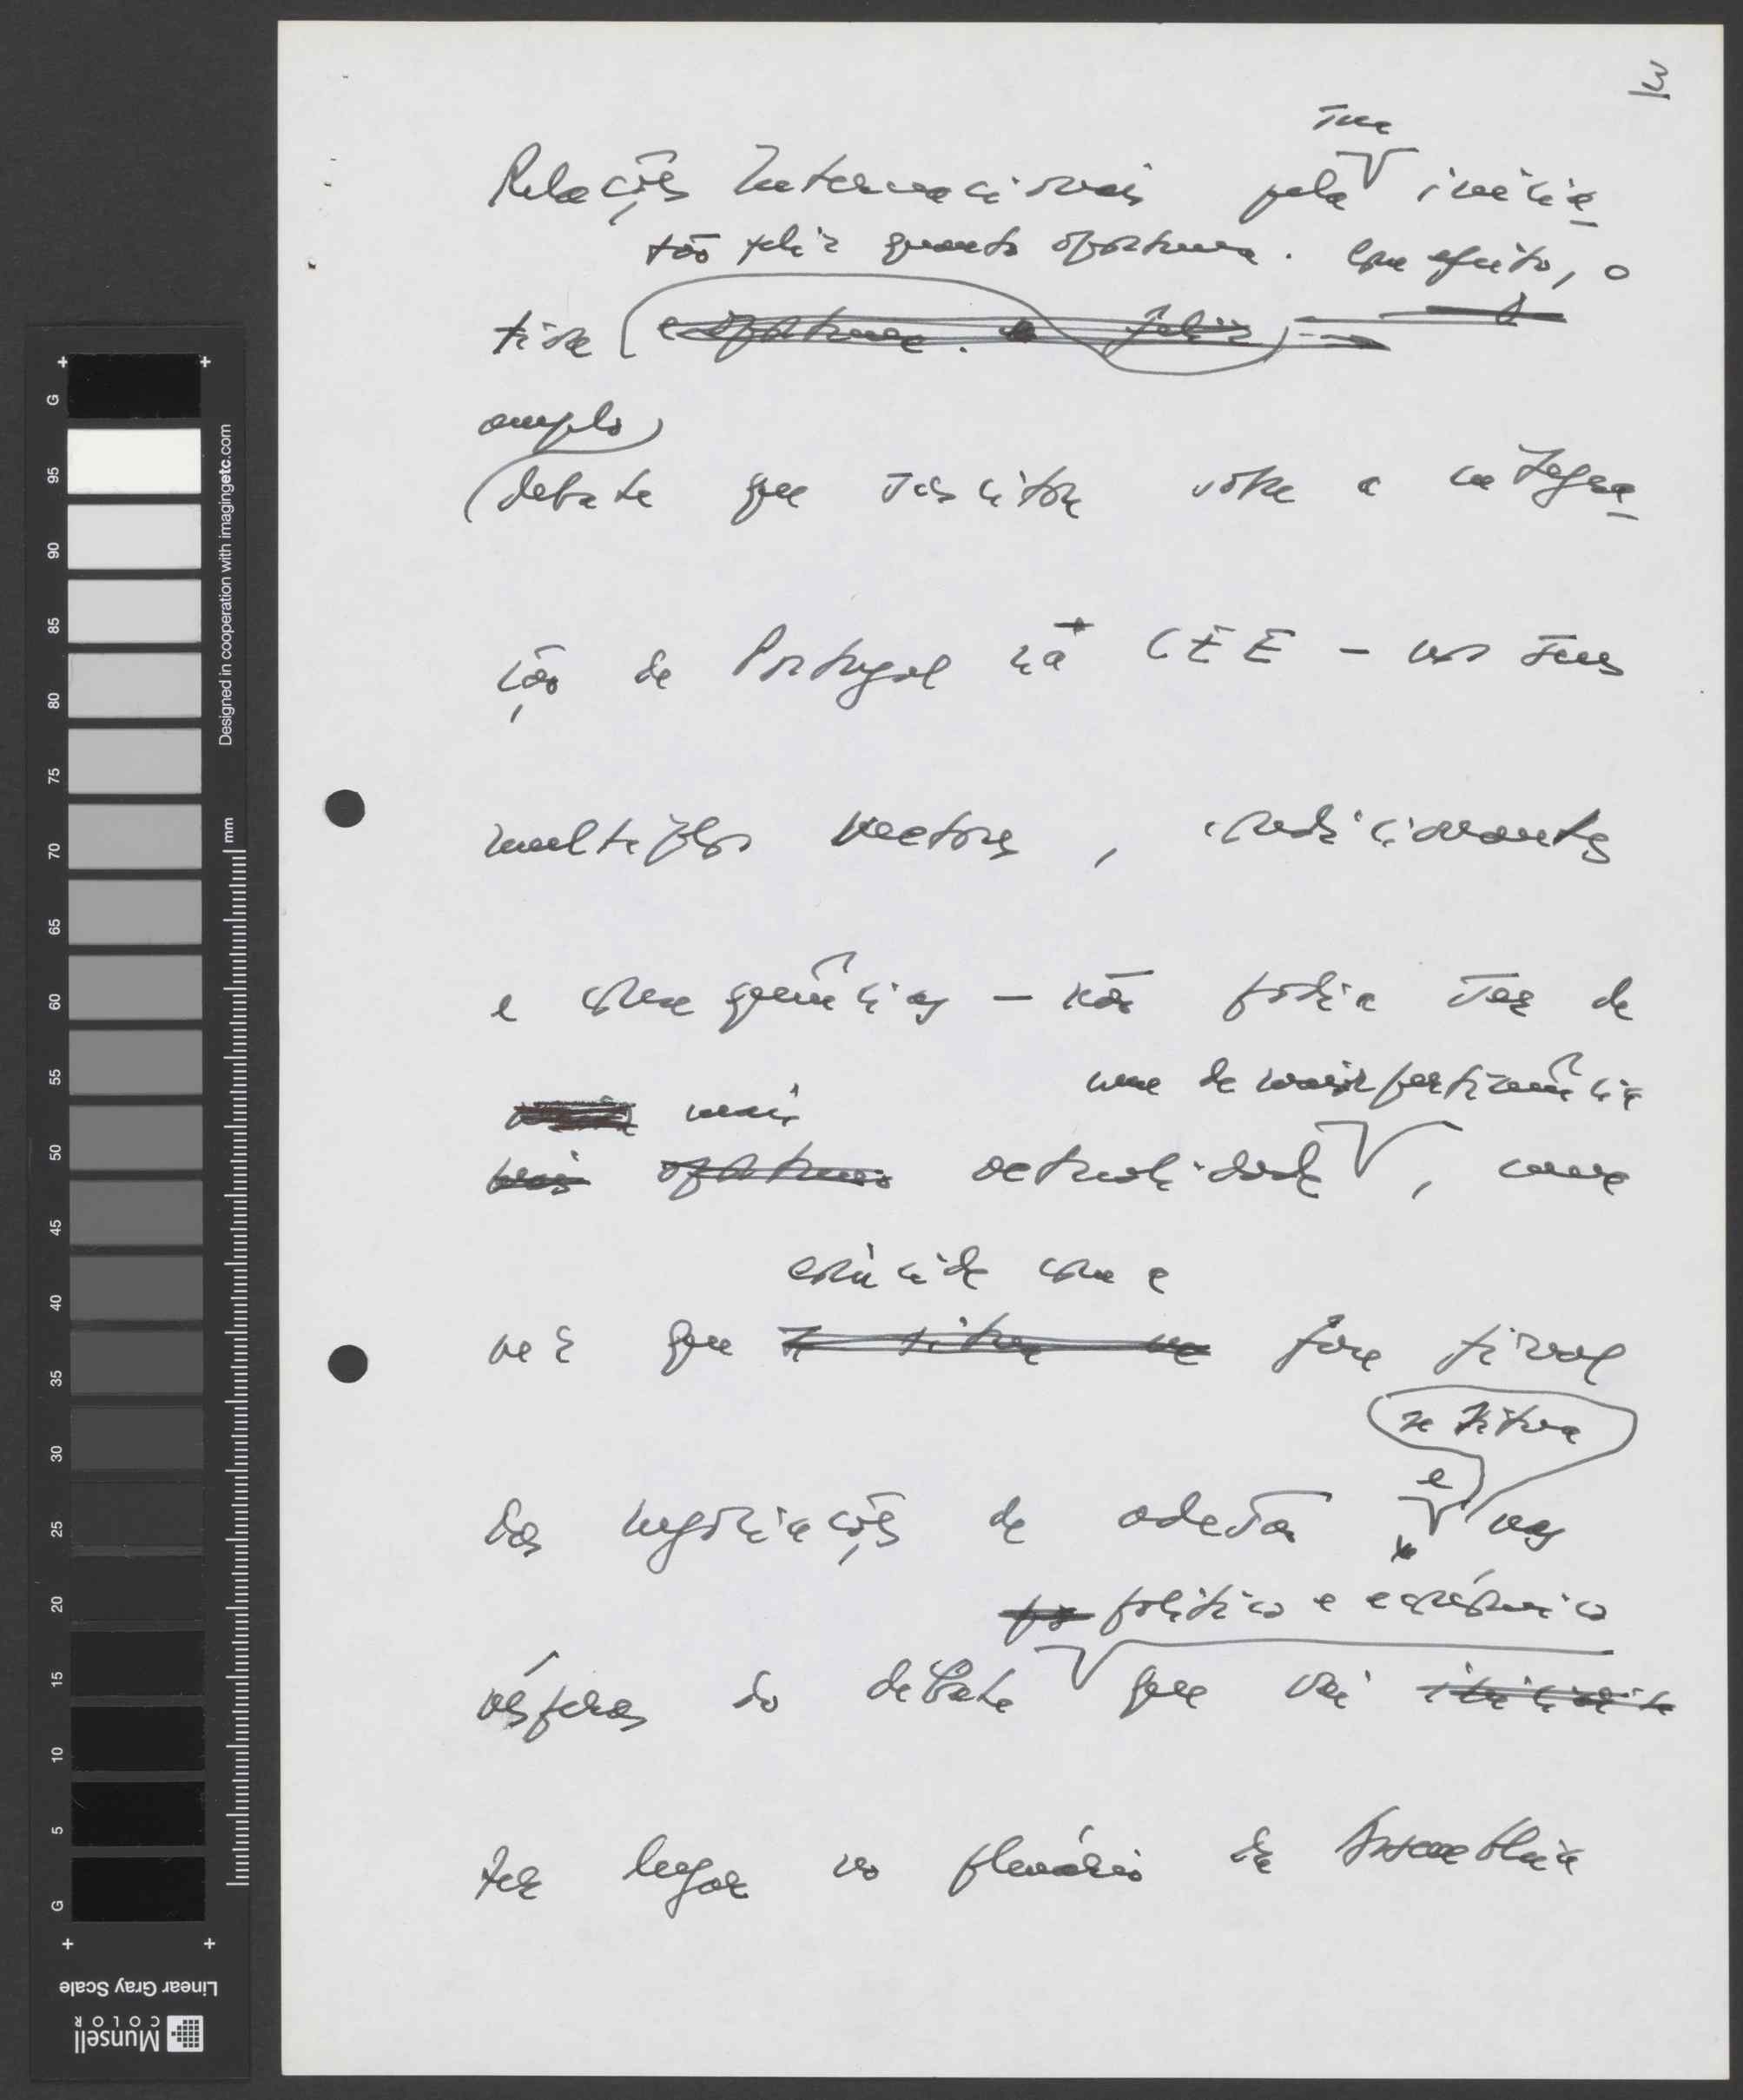 3
sua
Relações Internacionais pela inicia-
tão feliz quanto oportuna. Com efeito, o
tiva e oportuna. feliz
amplo
debate que suscitou sobre a integra-
ção de Portugal na CEE – nos seus
multiplos vectores, condicionantes
e consequências – não podia ser de
mais
uma de maior pertinência
mais oportuno actualidade, uma
coincide com a
vez que se situa na fase final
se situa
e
das negociações de adesão nas
política e económico
vésperas do debate que vai
ter lugar no plenário da Assembleia
G
95
90
85
80
75
70
65
60
55
50
45
40
35
30
25
20
15
10
5
G
mm
Designed in cooperation with imagingetc.com
Linear Gray Scale
Munsell
COLOR